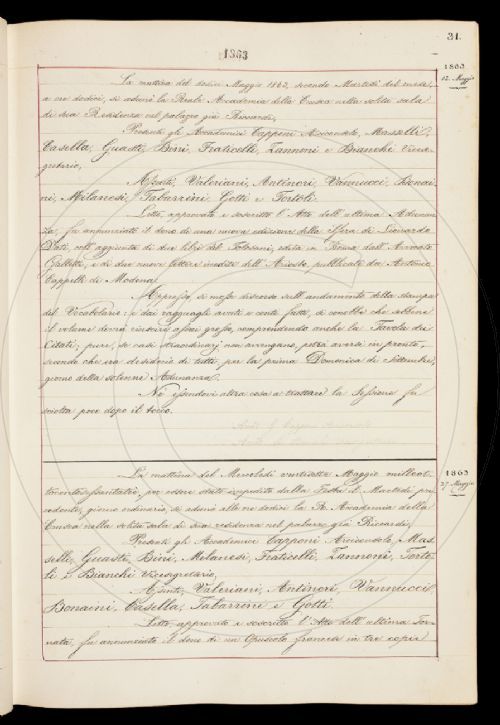 31.
1863
1863
12. Maggio
La mattina del dodici Maggio 1863, secondo Martedì del mese,
a ore dodici, si adunò la Reale Accademia della Crusca nella solita sala
di sua Residenza nel palazzo già Riccardi,
Presenti gli Accademici Capponi Arciconsolo, Masselli,
Casella, Guasti, Bini, Fraticelli, Zannoni e Bianchi Vicese-
gretario,
Assenti, Valeriani, Antinori, Vannucci, Bonai-
ni, Milanesi, Tabarrini, Gotti e Tortoli.
Letto, approvato e soscritto l'Atto dell'ultima Adunan-
za, fu annunziato il dono di una nuova edizione della Sfera di Leonardo
Dati, coll'aggiunta di due libri del Tolosani, edita in Roma dall'Avvocato
Galletti, e di due nuove lettere inedite dell'Ariosto, pubblicate da Antonio
Cappelli di Modena.
Appresso, si mosse discorso sull'andamento della stampa
del Vocabolario: e dai ragguagli avuti e conti fatti, si conobbe che sebbene
il volume dovrà riuscire assai grosso, comprendendo anche la Tavola dei
Citati, pure, se casi straordinarj non avvengano, potrà aversi in pronto,
secondo che era desiderio di tutti, per la prima Domenica di Settembre,
giorno della solenne Adunanza.
Nè essendovi altra cosa a trattare la Sessione fu
sciolta poco dopo il tocco.
1863
27. Maggio
La mattina del Mercoledì ventisette Maggio milleot-
tocentosessantatre, per essere stato impedito dalla Festa il Martedì pre-
cedente, giorno ordinario, si adunò alle ore dodici la R. Accademia della
Crusca nella solita sala di sua residenza nel palazzo già Riccardi,
Presenti gli Accademici Capponi Arciconsolo, Mas-
selli, Guasti, Bini, Milanesi, Fraticelli, Zannoni, Torto-
li e Bianchi Vicesegretario,
Assenti, Valeriani, Antinori, Vannucci,
Bonaini, Casella, Tabarrini e Gotti.
Letto, approvato e soscritto l'Atto dell'ultima Tor-
nata, fu annunziato il dono di un Opuscolo francese in tre copie